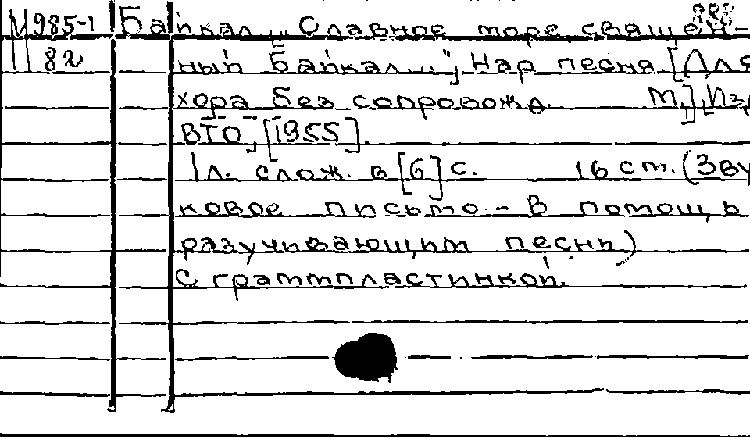 М985-1 Байкал „Славное море, священ-
82 ный Байкал..."; Нар песня [Для
хора без сопровожд. М.], Из
ВТО, [1955].
1л. слож. в [6] с. 16 см. (Зву
ковое письмо – в помощь
разучивающим песни)
С граммпластинкой.